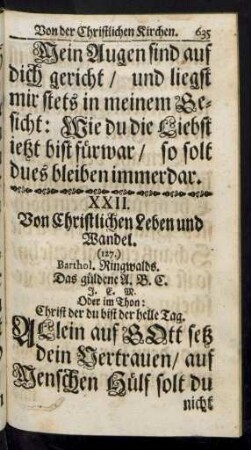 Von der Christlichen Kirchen. 635
Mein Augen sind auf
dich gericht / und liegst
mir stets in meinem Ge-
sicht: Wie du die Liebst
ietzt bist fürwar / so solt
dues bleiben immerdar.
XXII.
Von Christlichen Leben und
Wandel.
(127.)
Barthol. Ringwalds.
Das güldene A. B. C.
J. E. M.
Oder im Thon:
Christ der du bist der helle Tag.
ALlein auf GOtt setz
dein Vertrauen / auf
Menschen Hülf solt du
nicht